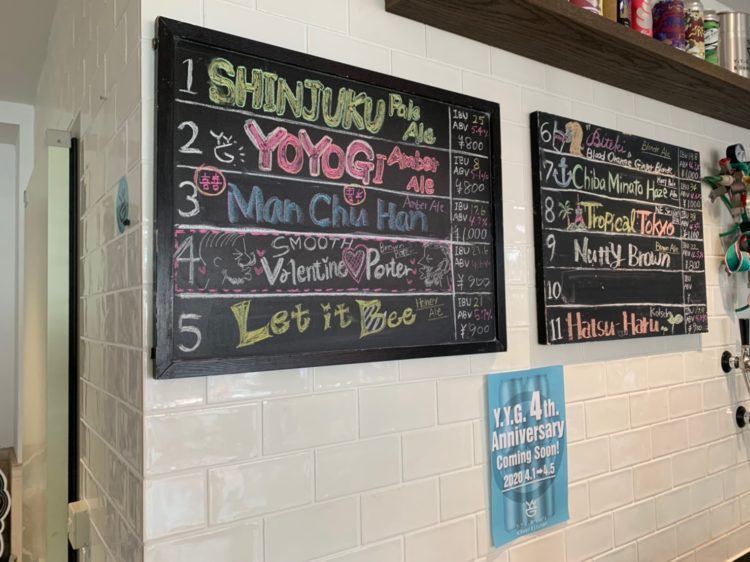 1 SHINJUKU Pale Ale
IBU 25
ABV 5.4%
¥800
2 YOYOGI Amber Ale
IBU 8
ABV 5.1%
¥800
3 Man Chu Han Amber Ale
ABV 4.7%
¥1000
4 SMOOTH
Valentine Porter
IBU
ABV
¥900
5 Let it Bee Honey Ale
IBU 21
ABV 5.7%
¥900
6 "Biteki" Blonde Ale
Blood Orange Ginger Blonde
7 Chiba Minato Haze
8 Tropical Tokyo
9 Nutty Brown Brown Ale
10
11 Hatsu-Haru Kolsch
Y.Y.G. 4th.
Anniversary
Coming Soon!
2020 4.1→4.5